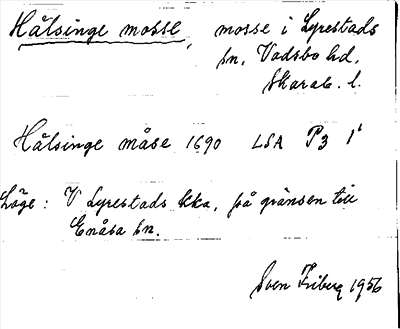 Hålsinge mosse, mosse i Lyrestads
sn, Vadsbo hd,
Skarab. l.
Hålsinge måse 1690 LSA P3 1¹
Läge: V Lyrestads kka, på gränsen till
Enåsa sn.
Sven Friberg 1956